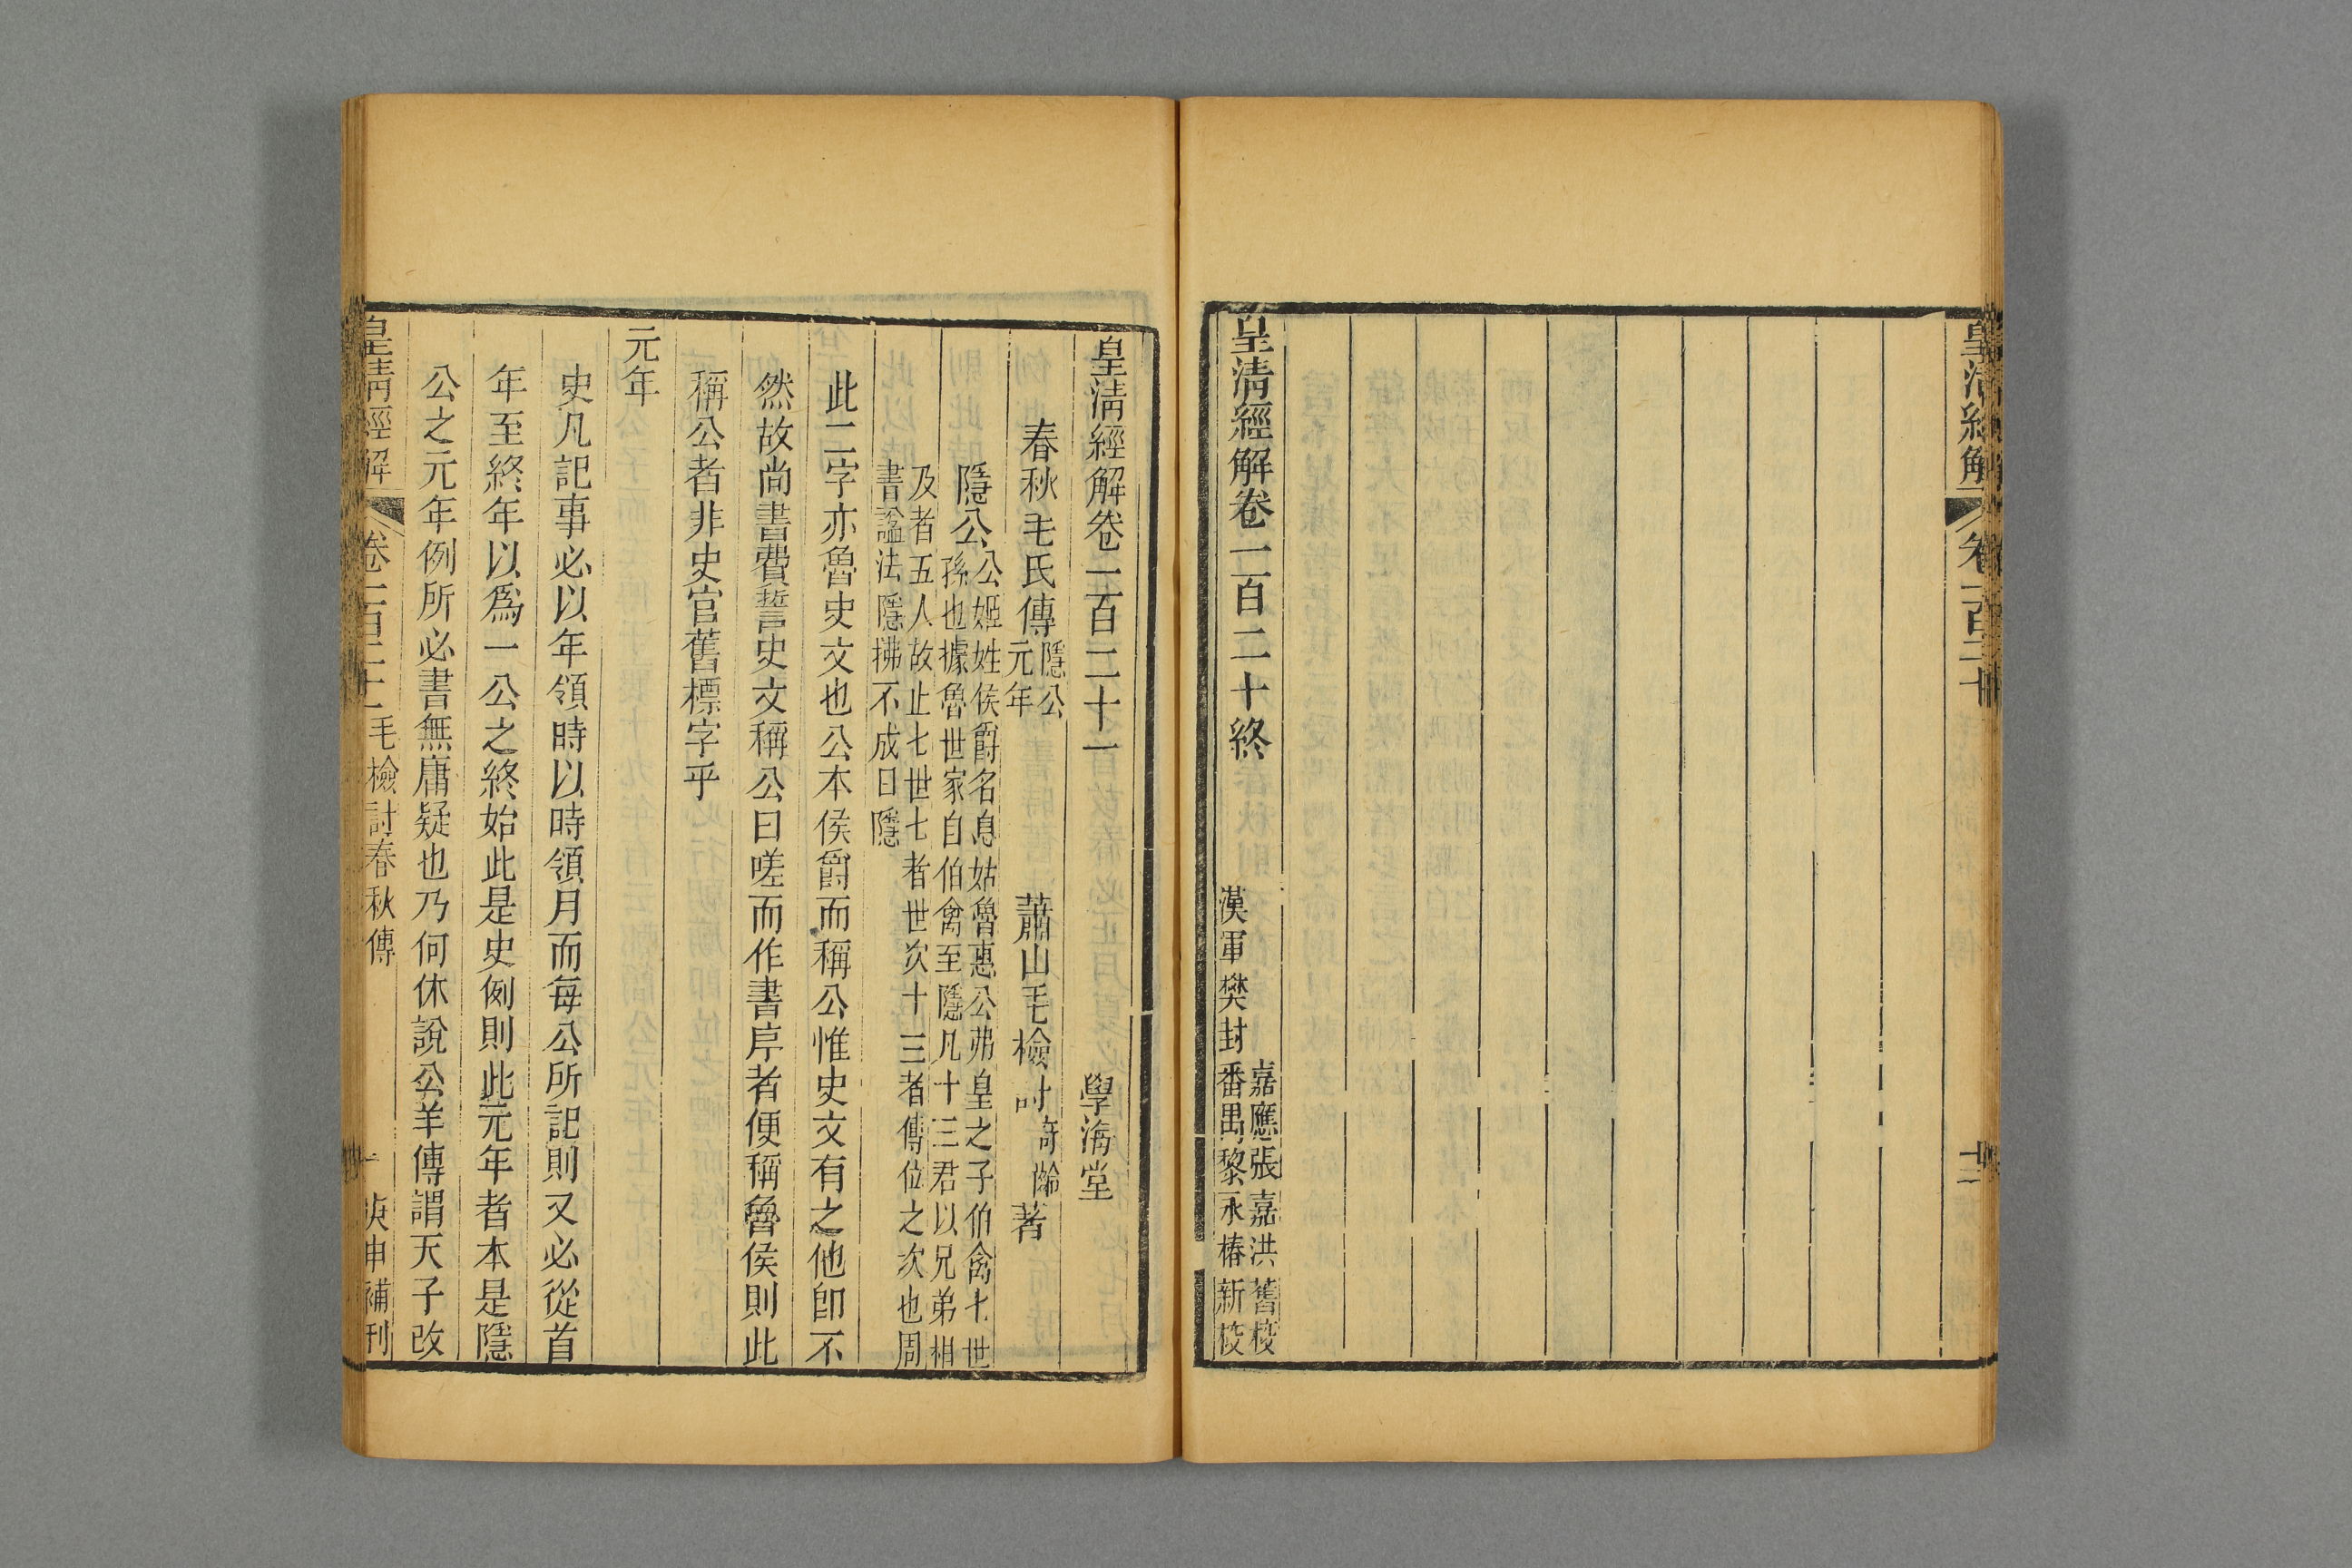 皇清經解
卷一百二十
十二
皇清經解卷一百二十終
漢軍樊封
嘉應張嘉洪舊校
番禺黎永椿新校
皇清經解卷一百二十一
學海堂
春秋毛氏傳
隱公
元年
蕭山毛檢討奇齡著
隱公
公姬姓侯爵名息姑魯惠公弗皇之子伯禽七世
孫也據魯世家自伯禽至隱凡十三君以兄弟相
及者五人故止七世七者世次十三者傳位之次也周
書諡法隱拂不成曰隱
此二字亦魯史文也公本侯爵而稱公惟史文有之他卽不
然故尚書費誓史文稱公曰嗟而作書序者便稱魯侯則此
稱公者非史官舊標字乎
元年
史凡記事必以年領時以時領月而每公所記則又必從首
年至終年以爲一公之終始此是史例則此元年者本是隱
公之元年例所必書無庸疑也乃何休說公羊傳謂天子改
皇清經解
卷一百二十一
毛檢討春秋傳
一
庚申補刊